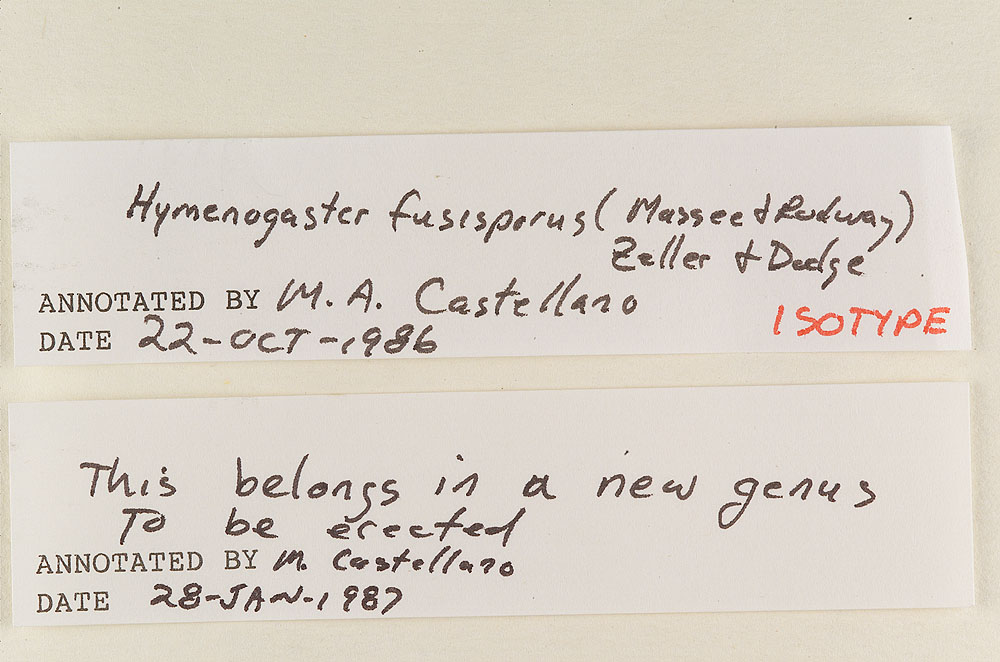 Hymenogaster fusisporus (Massee & Rodway)
Zeller & Dodge
ANNOTATED BY M. A. Castellano
ISOTYPE
DATE 22-OCT-1986
This belongs in a new genus
To be erected
ANNOTATED BY M. Castellano
DATE 28-JAN-1987